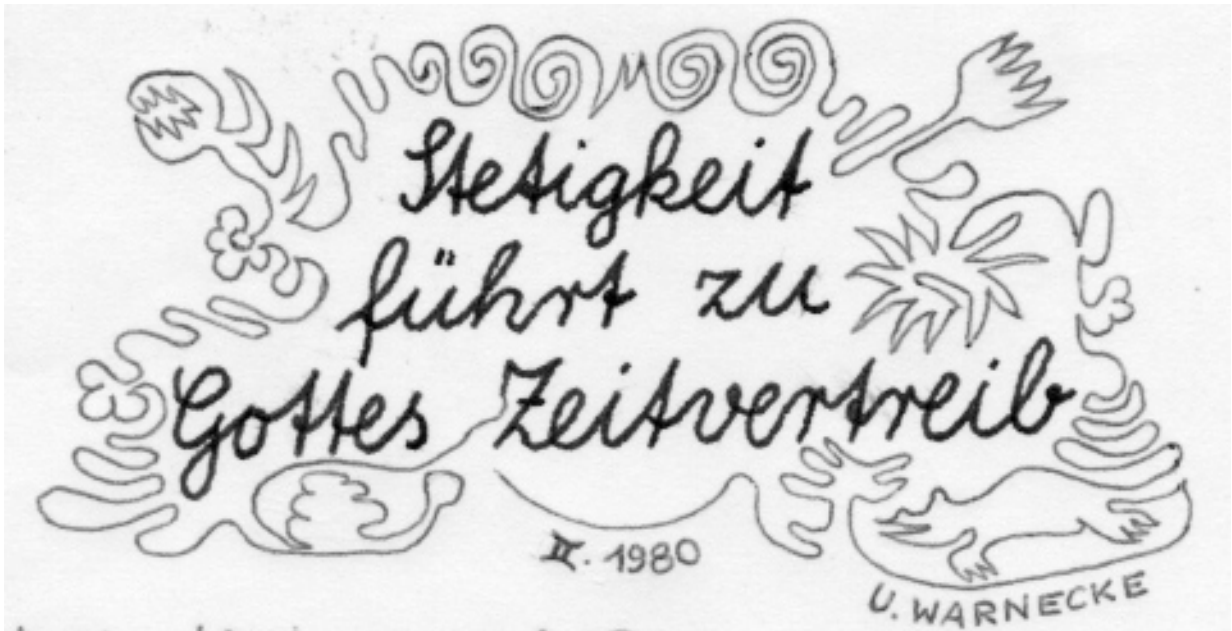 Stetigkeit
führt zu
Gottes Zeitvertreib
II. 1980
U. WARNECKE